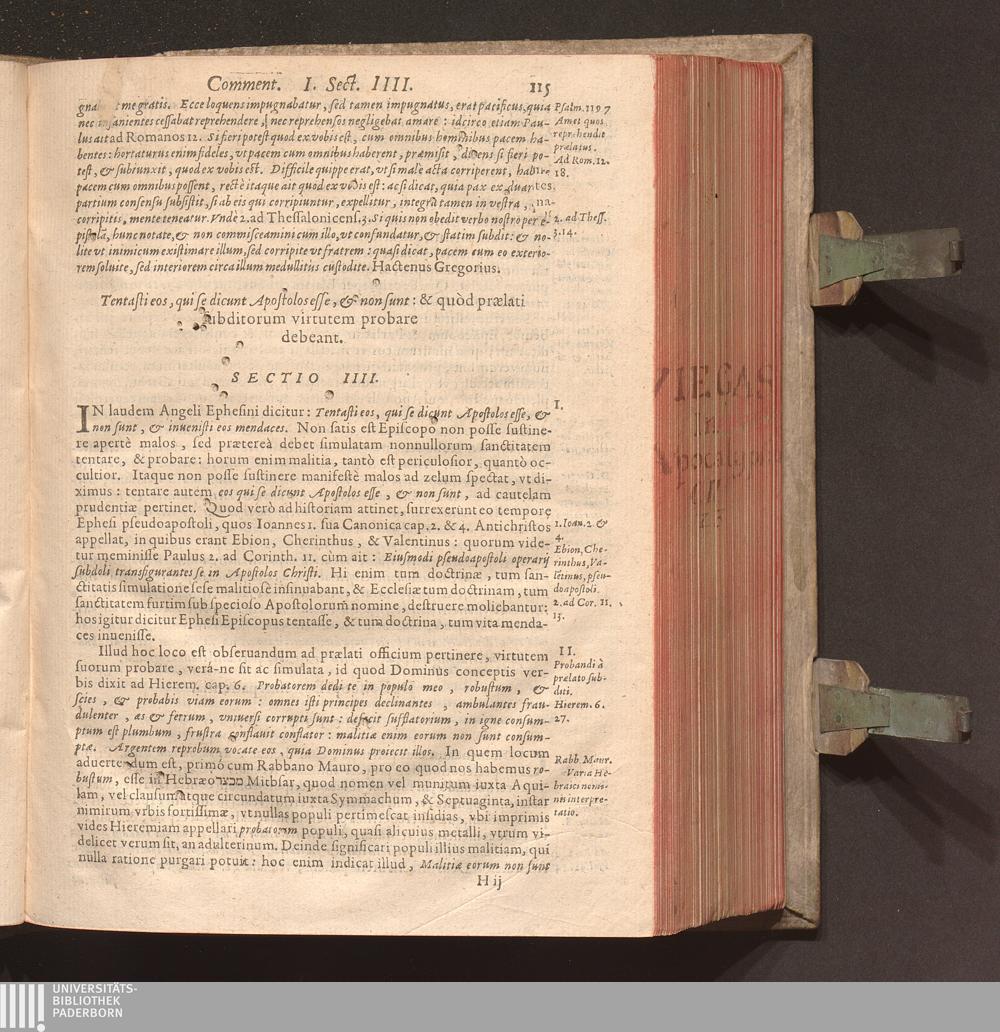 Comment. I. Sect. IIII. 115
me gratis. Ecce loquens impugnabatur, sed tamen impugnatus, erat pacificus, quia
nec insanientes cessabat reprehendere, nec reprehensos negligebat amare: idcirco etiam Pau-
lus ait ad Romanos 12. Si fieri potest quod ex vobis est, cum omnibus hominibus pacem ha-
bentes: hortaturus enim fideles, vt pacem cum omnibus haberent, præmisit, dicens si fieri po-
test, & subiunxit, quod ex vobis est. Difficile quippe erat, vt si malè acta corriperent, habere
pacem cum omnibus possent, rectè itaque ait quod ex vobis est: ac si dicat, quia pax ex duarum
partium consensu subsistit, si ab eis qui corripiuntur, expellitur, integra tamen in vestra, qui
corripitis, mente teneatur. Vndè 2. ad Thessalonicens. 3. Si quis non obedit verbo nostro per e-
pistolã, hunc notate, & non commisceamini cum illo, vt confundatur, & statim subdit: & no-
lite vt inimicum existimare illum, sed corripite vt fratrem: quasi dicat, pacem cum eo exterio-
rem soluite, sed interiorem circa illum medullitùs custodite. Hactenus Gregorius.
Psalm. 119 7
Amet quos
reprehendit
prælatus.
Ad Rom. 12.
18.
2. ad Thess.
3.14.
Tentasti eos, qui se dicunt Apostolos esse, & non sunt: & quòd prælati
subditorum virtutem probare
debeant.
SECTIO IIII.
IN laudem Angeli Ephesini dicitur: Tentasti eos, qui se dicunt Apostolos esse, &
non sunt, & inuenisti eos mendaces. Non satis est Episcopo non posse sustine-
re apertè malos, sed prætereà debet simulatam nonnullorum sanctitatem
tentare, & probare: horum enim malitia, tantò est periculosior, quantò oc-
cultior. Itaque non posse sustinere manifestè malos ad zelum spectat, vt di-
ximus: tentare autem eos qui se dicunt Apostolos esse, & non sunt, ad cautelam
prudentiæ pertinet. Quod verò ad historiam attinet, surrexerunt eo tempore
Ephesi pseudoapostoli, quos Ioannes 1. sua Canonica cap. 2. & 4. Antichristos
appellat, in quibus erant Ebion, Cherinthus, & Valentinus: quorum vide-
tur meminisse Paulus 2. ad Corinth. 11. cùm ait: Eiusmodi pseudoapostoli operarij
subdoli transfigurantes se in Apostolos Christi. Hi enim tum doctrinæ, tum san-
ctitatis simulatione sese malitiosè insinuabant, & Ecclesiæ tum doctrinam, tum
sanctitatem furtim sub specioso Apostolorum nomine, destruere moliebantur:
hos igitur dicitur Ephesi Episcopus tentasse, & tum doctrina, tum vita menda-
ces inuenisse.
I.
1. Ioan. 2. &
4.
Ebion, Che-
rinthus, Va-
letinus, pseu-
doapostoli.
2. ad Cor. 11.
15.
Illud hoc loco est obseruandum ad prælati officium pertinere, virtutem
suorum probare, verá-ne sit ac simulata, id quod Dominus conceptis ver-
bis dixit ad Hierem. cap. 6. Probatorem dedi te in populo meo, robustum, &
scies, & probabis viam eorum: omnes isti principes declinantes, ambulantes frau-
dulenter, æs & ferrum, vniuersi corrupti sunt: defecit sufflatorium, in igne consum-
ptum est plumbum, frustra conflauit conflator: malitiæ enim eorum non sunt consum-
ptæ. Argentem reprobum vocate eos, quia Dominus proiecit illos. In quem locum
aduertendum est, primò cum Rabbano Mauro, pro eo quod nos habemus ro-
bustum, esse in Hebræo מבצר Mitbsar, quod nomen vel munitum iuxta Aqui-
lam, vel clausum atque circundatum iuxta Symmachum, & Septuaginta, instar
nimirum vrbis fortissimæ, vt nullas populi pertimescat insidias, vbi imprimis
vides Hieremiam appellari probatorem populi, quasi alicuius metalli, vtrum vi-
delicet verum sit, an adulterinum. Deinde significari populi illius malitiam, qui
nulla ratione purgari potuit: hoc enim indicat illud, Malitiæ eorum non sunt
II.
Probandi à
prælato sub-
diti.
Hierem. 6.
27.
Rabb. Maur.
Varia He-
braici nomi-
nis interpre-
tatio.
H ij
VIEGAS
In
Apocalypsin
UNIVERSITÄTS-
BIBLIOTHEK
PADERBORN